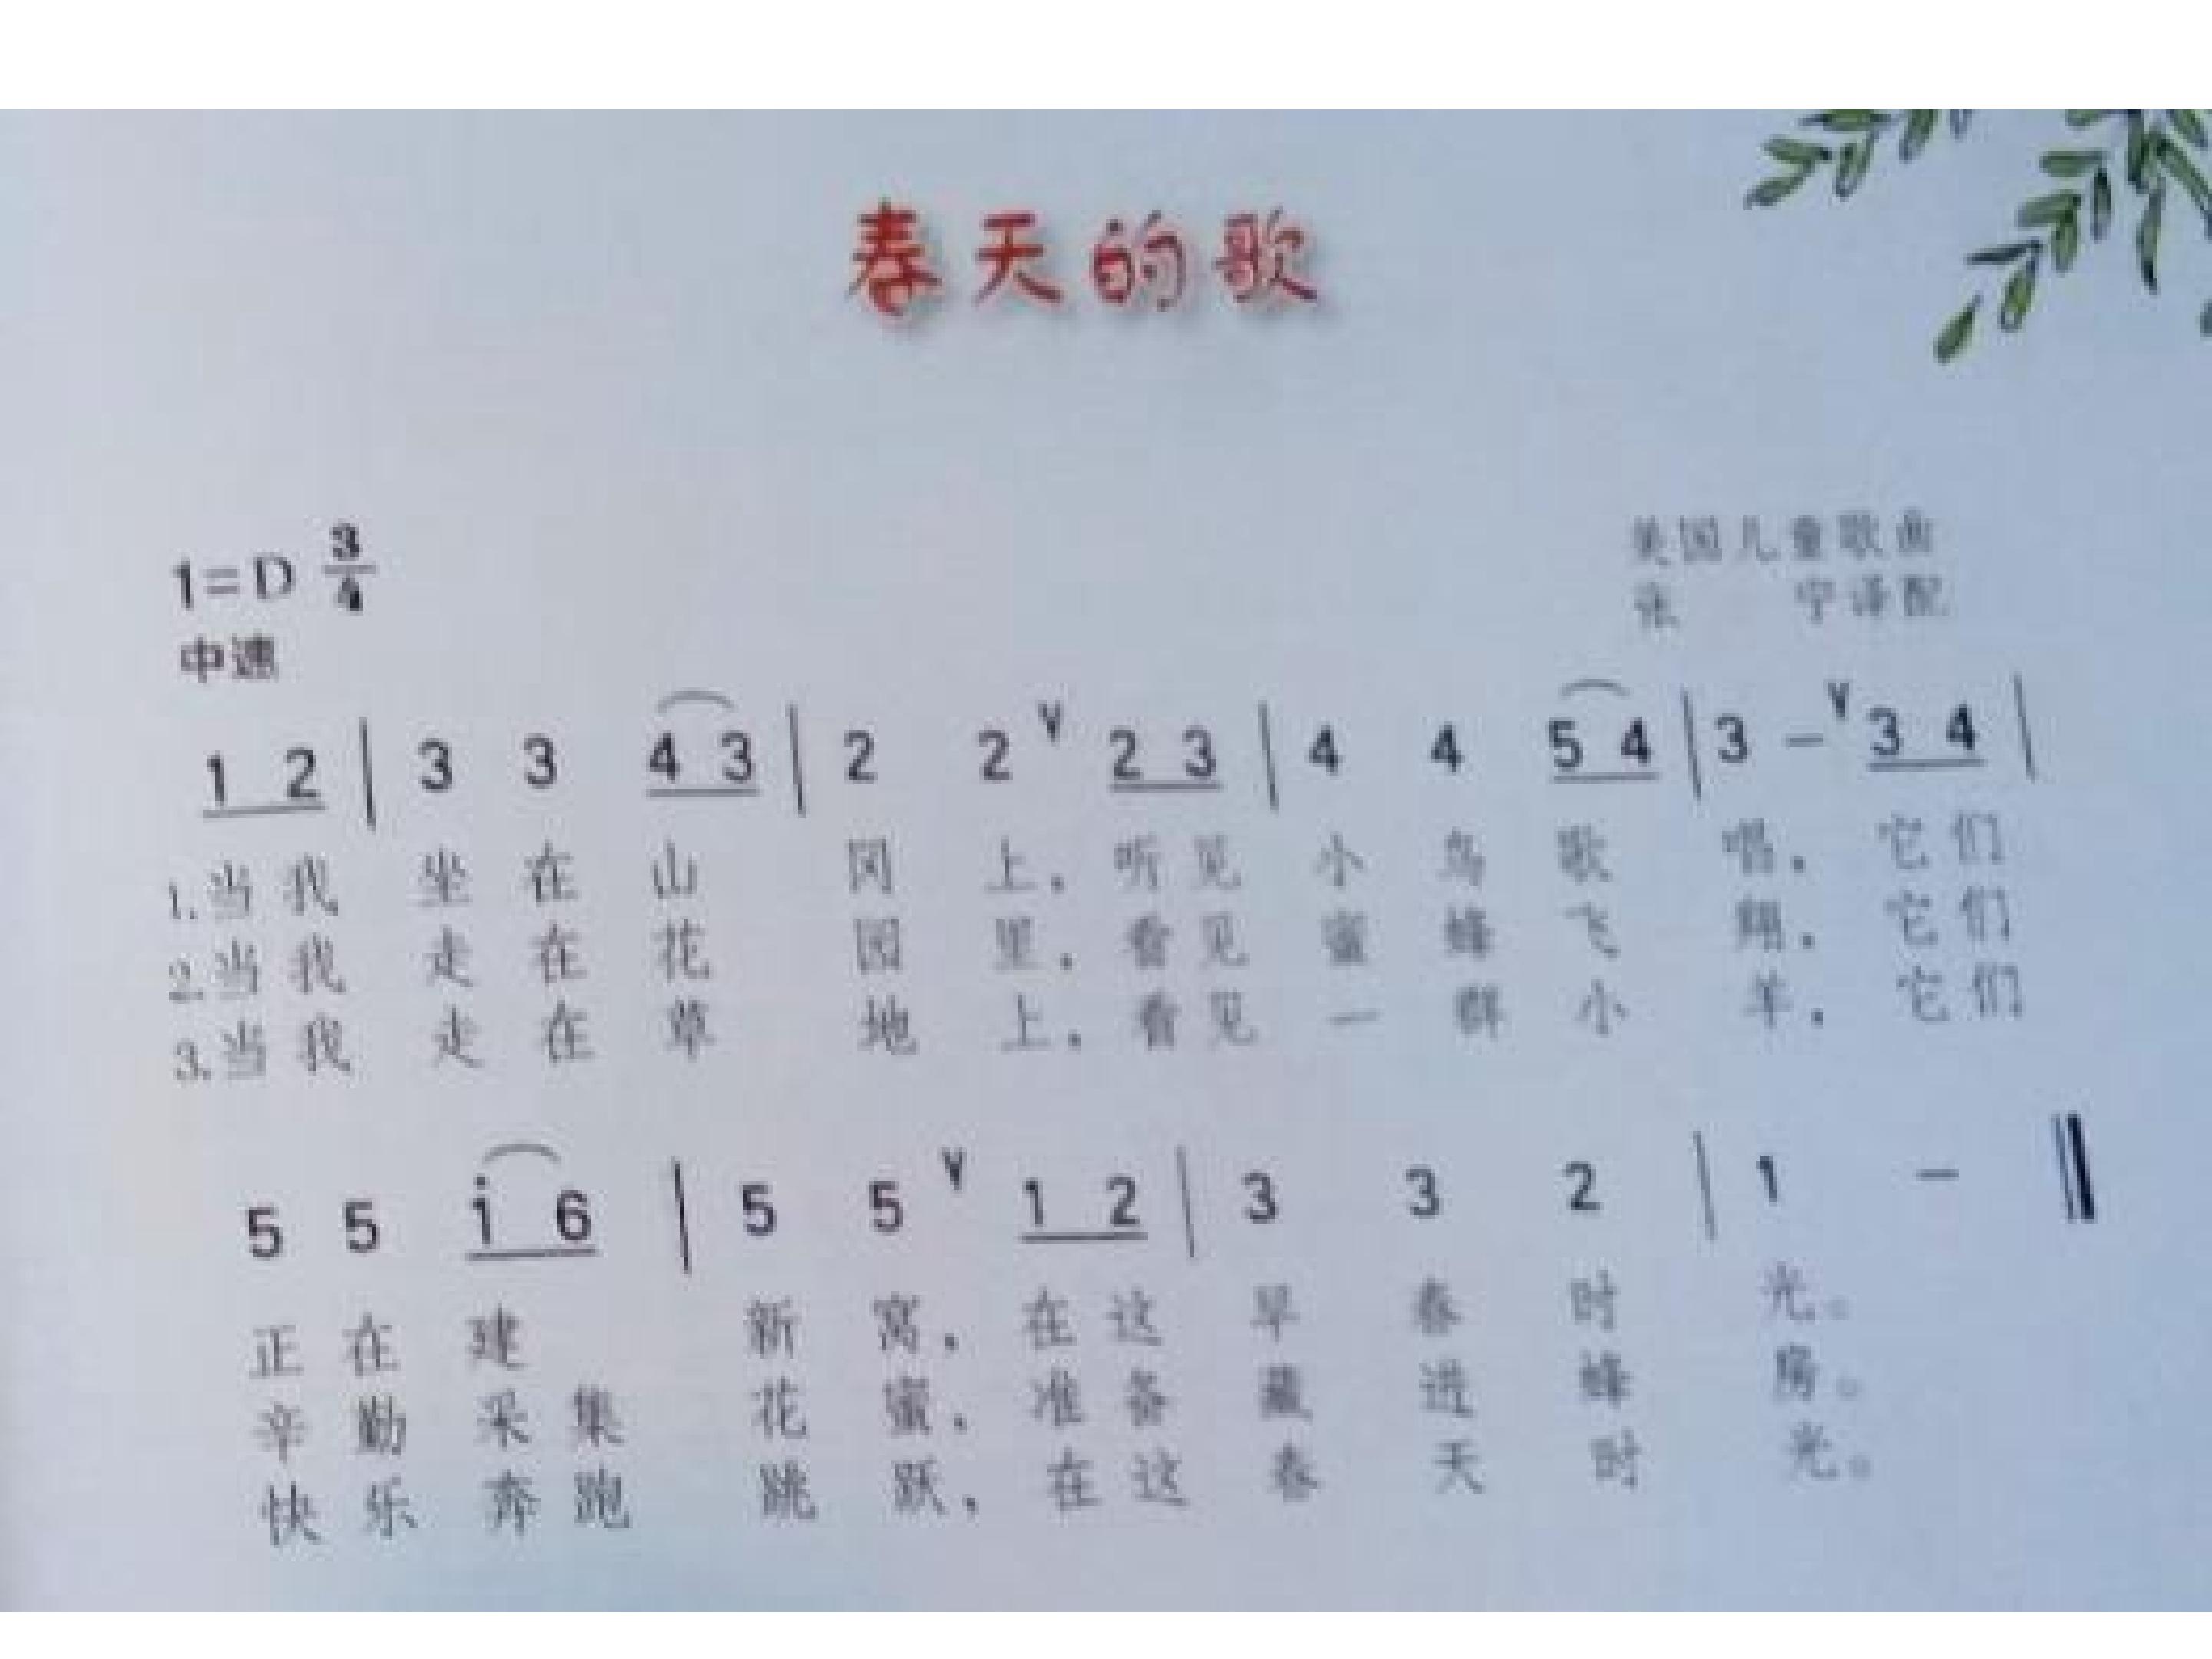 春天的歌
1=D 3/4
美国儿童歌曲
张 宁译配
中速
1 2 | 3 3 4 3 | 2 2 V 2 3 | 4 4 5 4 | 3 - V 3 4 |
1.当我 坐 在 山 冈 上，听见 小 鸟 歌 唱，它们
2.当我 走 在 花 园 里，看见 蜜 蜂 飞 翔，它们
3.当我 走 在 草 地 上，看见 一 群 小 羊，它们
5 5 i 6 | 5 5 V 1 2 | 3 3 2 | 1 - ‖
正 在 建 新 窝，在这 早 春 时 光。
辛 勤 采集 花 蜜，准备 藏 进 蜂 房。
快 乐 奔跑 跳 跃，在这 春 天 时 光。